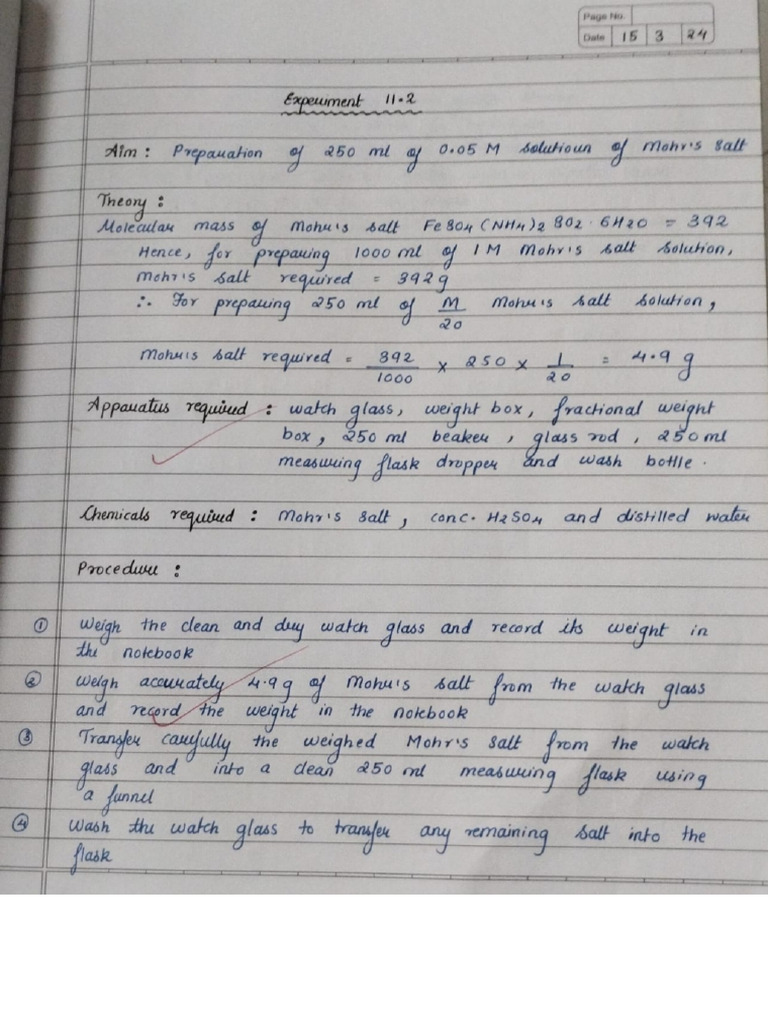 Page No.
Date 15 3 24
Experiment 11.2
Aim : Preparation of 250 ml of 0.05 M solutioun of Mohr's salt
Theory :
Molecular mass of Mohr's salt FeSO4 (NH4)2 SO2 · 6H2O = 392
Hence, for preparing 1000 ml of 1 M Mohr's salt solution,
Mohr's salt required = 392g
∴ For preparing 250 ml of M/20 Mohr's salt solution,
Mohr's salt required = 392/1000 × 250 × 1/20 = 4.9 g
Apparatus required : watch glass, weight box, fractional weight
box, 250 ml beaker, glass rod, 250 ml
measuring flask dropper and wash bottle.
Chemicals required : Mohr's salt, conc. H2SO4 and distilled water
Procedure :
① Weigh the clean and dry watch glass and record its weight in
the notebook
② Weigh accurately 4.9 g of Mohr's salt from the watch glass
and record the weight in the notebook
③ Transfer carefully the weighed Mohr's salt from the watch
glass and into a clean 250 ml measuring flask using
a funnel
④ Wash the watch glass to transfer any remaining salt into the
flask